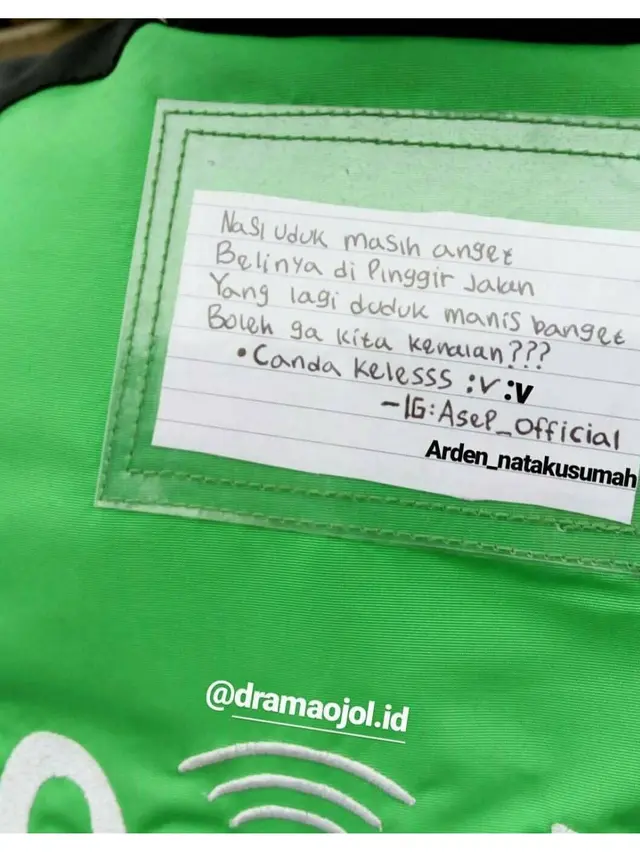 Nasi uduk masih anget
Belinya di Pinggir Jalan
Yang lagi duduk manis banget
Boleh ga kita kenalan???
• Canda kelesss :v :v
-IG: Asep_official
Arden_natakusumah
@dramaojol.id